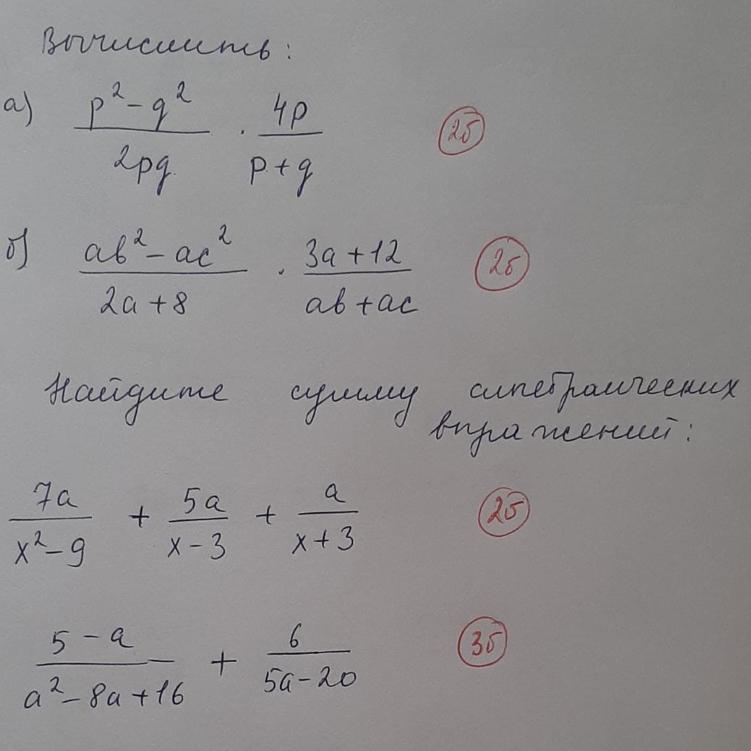 Вычислить:
а) (p² - q²)/(2pq) · (4p)/(p + q) 2б
б) (ab² - ac²)/(2a + 8) · (3a + 12)/(ab + ac) 2б
Найдите сумму алгебраических
выражений:
(7a)/(x² - 9) + (5a)/(x - 3) + a/(x + 3) 2б
(5 - a)/(a² - 8a + 16) + 6/(5a - 20) 3б